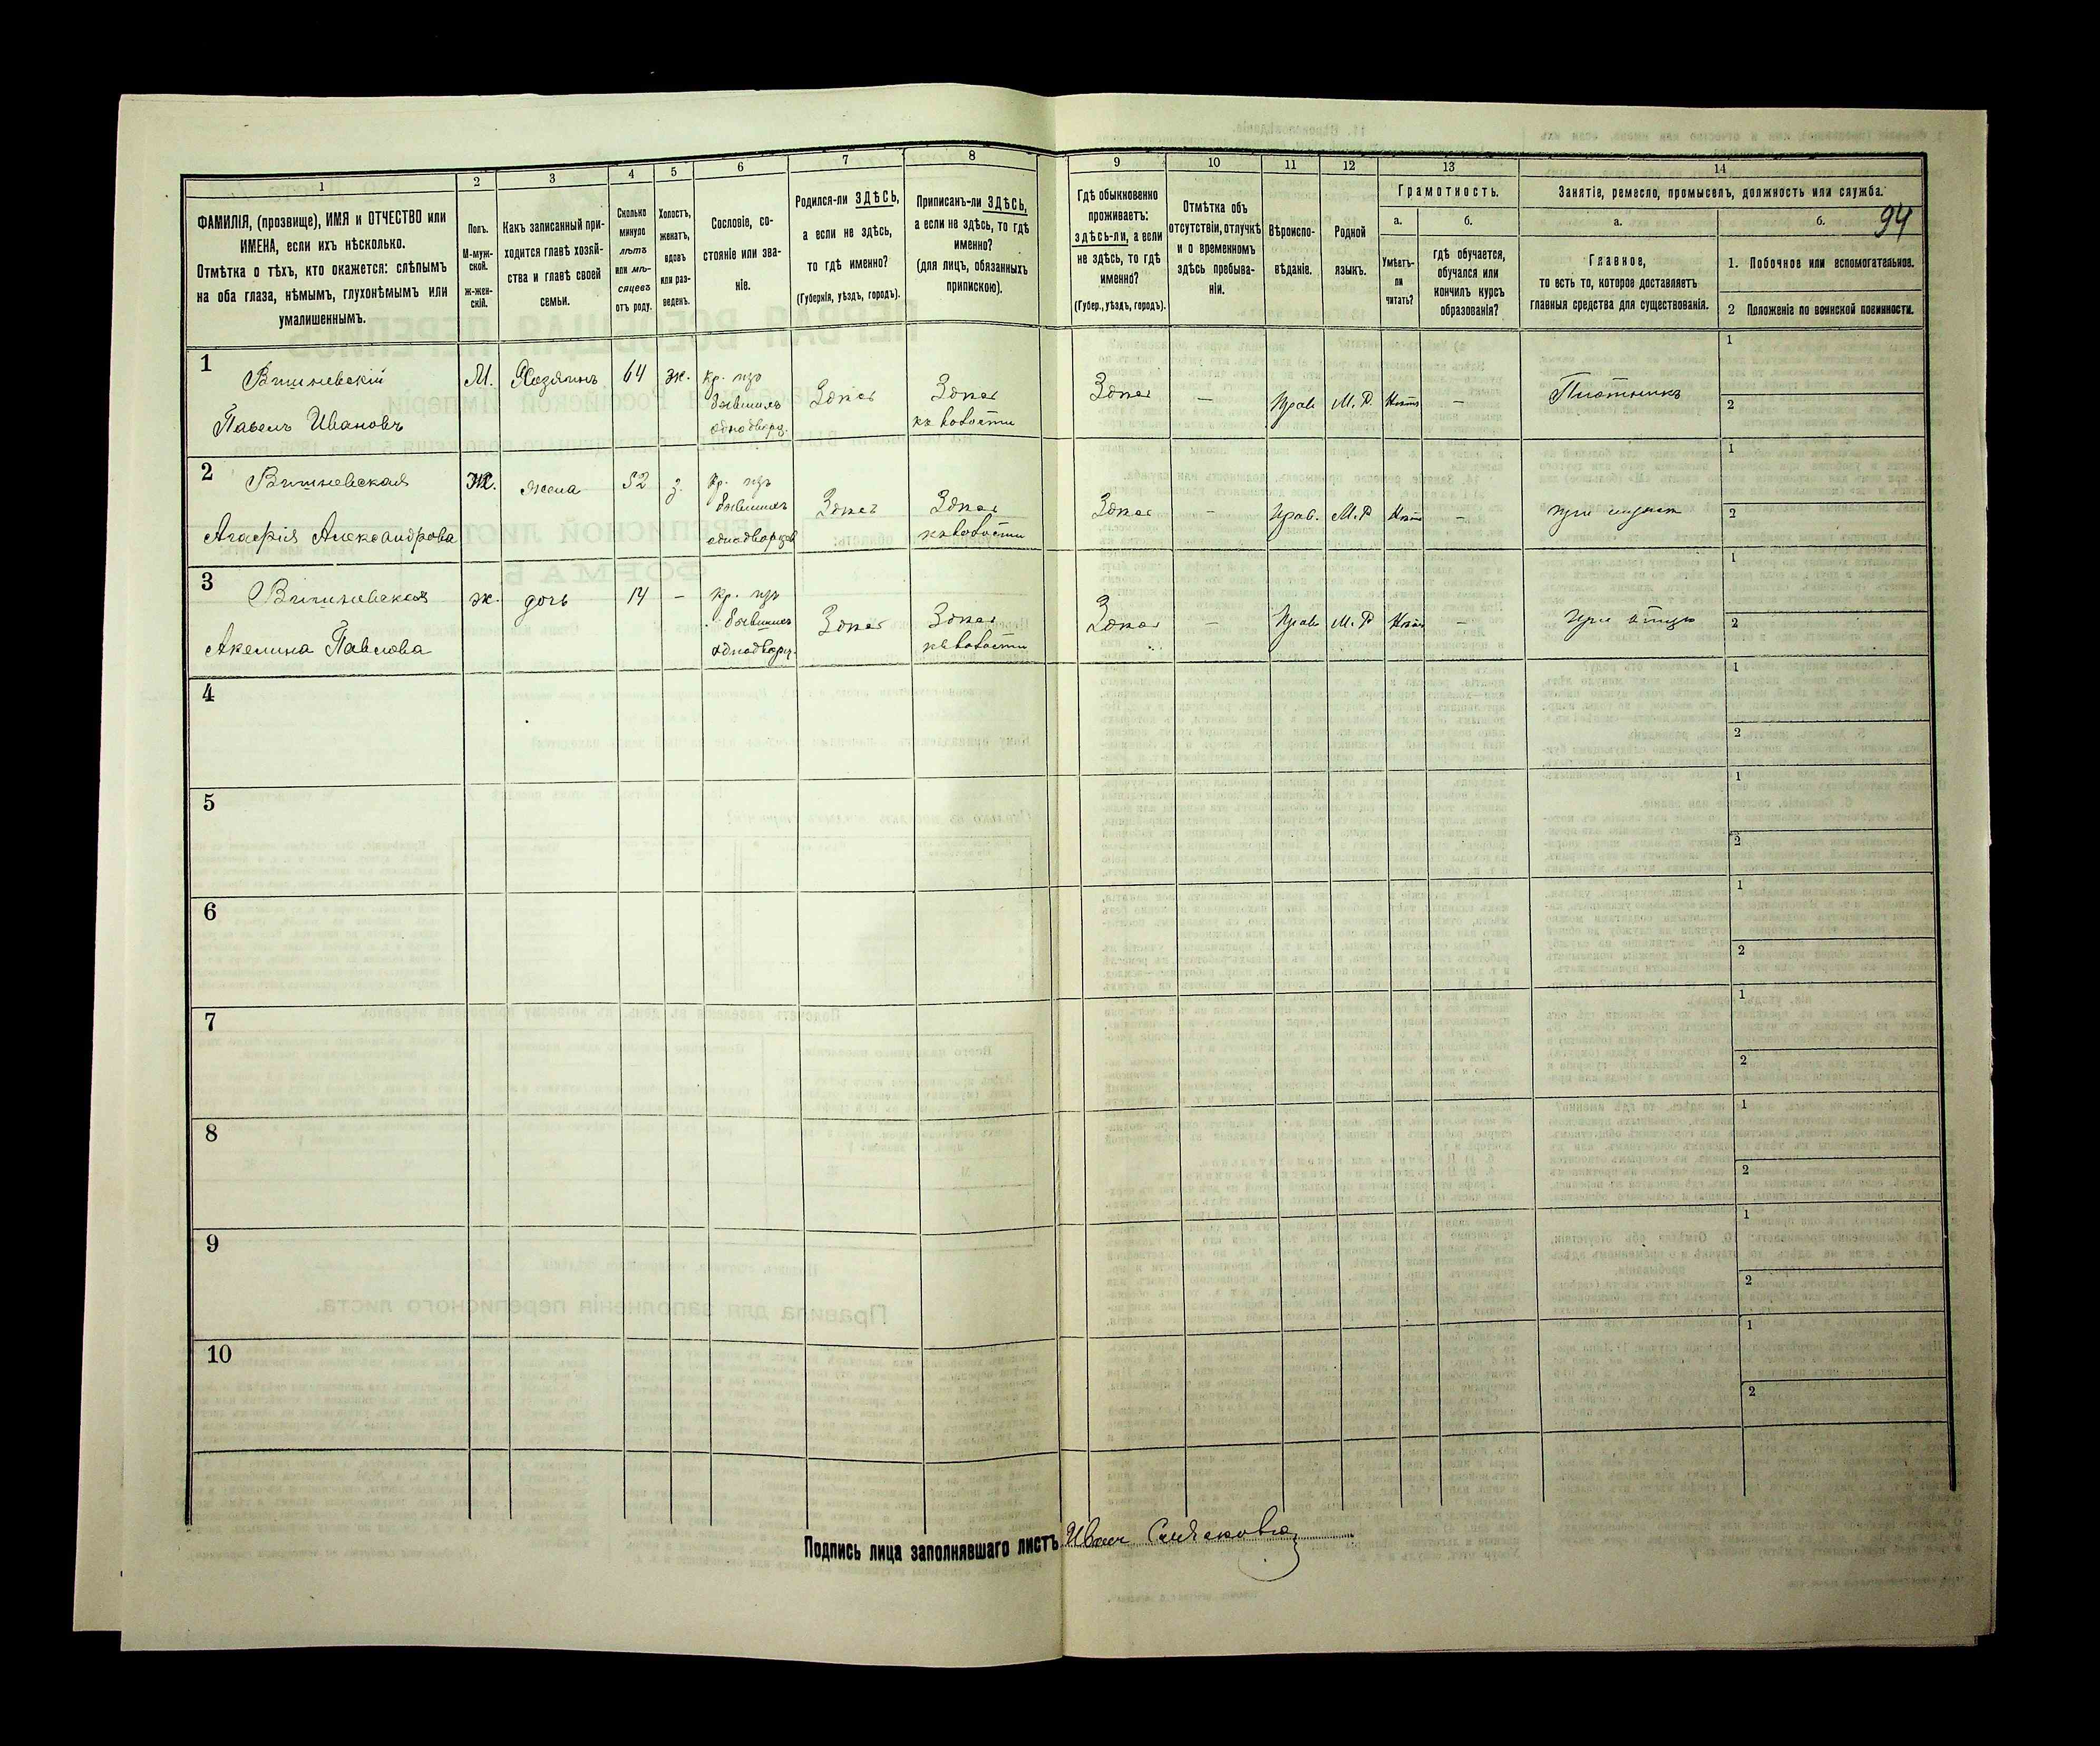 94
1
2
3
4
5
6
7
8
9
10
11
12
13
14
ФАМИЛІЯ, (прозвище), ИМЯ и ОТЧЕСТВО или
ИМЕНА, если ихъ нѣсколько.
Отмѣтка о тѣхъ, кто окажется: слѣпымъ
на оба глаза, нѣмымъ, глухонѣмымъ или
умалишеннымъ.
Полъ.
М-муж-
ской.
Ж-жен-
скій.
Какъ записанный при-
ходится главѣ хозяй-
ства и главѣ своей
семьи.
Сколько
минуло
лѣтъ
или мѣ-
сяцевъ
отъ роду.
Холостъ,
женатъ,
вдовъ
или раз-
веденъ.
Сословіе, со-
стояніе или зва-
ніе.
Родился-ли ЗДѢСЬ,
а если не здѣсь,
то гдѣ именно?
(Губернія, уѣздъ, городъ).
Приписанъ-ли ЗДѢСЬ,
а если не здѣсь, то гдѣ
именно?
(для лицъ, обязанныхъ
припискою).
Гдѣ обыкновенно
проживаетъ:
здѣсь-ли, а если
не здѣсь, то гдѣ
именно?
(Губер., уѣздъ, городъ).
Отмѣтка объ
отсутствіи, отлучкѣ
и о временномъ
здѣсь пребыва-
ніи.
Вѣроиспо-
вѣданіе.
Родной
языкъ.
Грамотность.
а.
Умѣетъ-
ли
читать?
б.
гдѣ обучается,
обучался или
кончилъ курсъ
образованія?
Занятіе, ремесло, промыселъ, должность или служба.
а.
Главное,
то есть то, которое доставляетъ
главныя средства для существованія.
б.
1. Побочное или вспомогательное.
2 Положеніе по воинской повинности.
1
Вишневскій
Павелъ Ивановъ
М.
Хозяинъ
64
ж.
Кр. изъ
бывшихъ
однодворц.
Здѣсь
Здѣсь
къ волости
Здѣсь
—
Прав
М. Р
Нѣтъ
—
Плотникъ
1
2
2
Вишневская
Агафія Александрова
Ж.
жена
52
з.
Кр. изъ
бывшихъ
однодворцев
Здѣсь
Здѣсь
къ волости
Здѣсь
—
Прав.
М. Р
Нѣтъ
—
при мужѣ
1
2
3
Вишневская
Акелина Павлова
ж.
дочь
14
—
Кр. изъ
бывшихъ
однодворц.
Здѣсь
Здѣсь
къ волости
Здѣсь
—
Прав
М. Р
Нѣтъ
—
при отцѣ
1
2
4
1
2
5
1
2
6
1
2
7
1
2
8
1
2
9
1
2
10
1
2
Подпись лица заполнявшаго листъ Иван